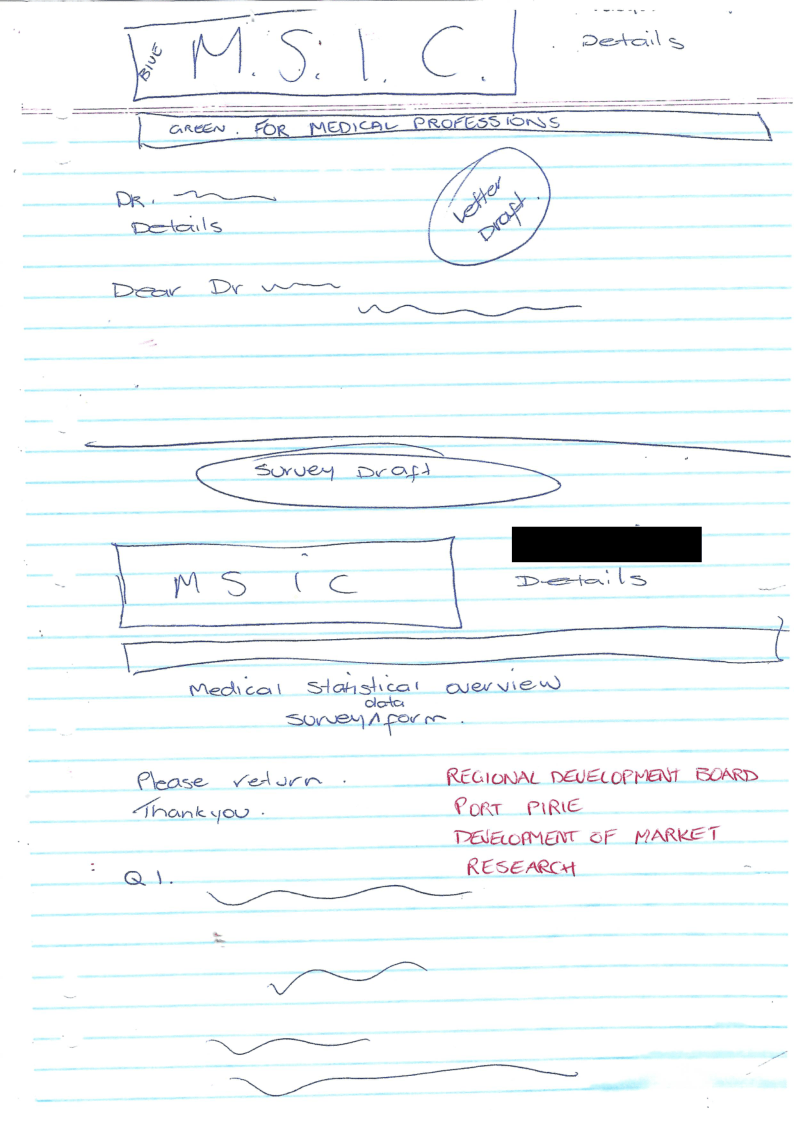 BLUE M.S.I.C. Details
GREEN. FOR MEDICAL PROFESSIONS
DR.
Details
Letter
Draft.
Dear Dr
Survey Draft
M S I C
Details
Medical Statistical overview
data
survey ^ form.
Please return. REGIONAL DEVELOPMENT BOARD
Thankyou. PORT PIRIE
DEVELOPMENT OF MARKET
RESEARCH
Q1.